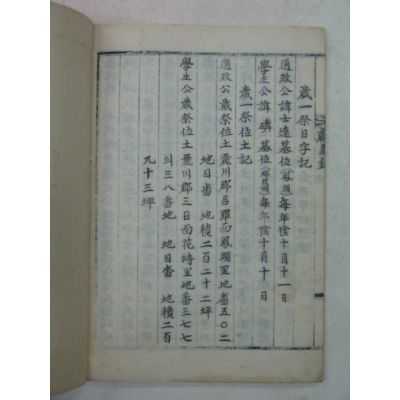 歲一祭日字記
通政公諱士遠墓位(鳳頭)每年陰十月十一日
學生公諱璘墓位 每年陰十月十日
歲一祭位土記
通政公歲祭位土麗川郡召羅面鳳頭里地番五〇二
地目畓 地積二百二十二坪
學生公歲祭位土麗川郡三日面花峙里地番三七七
의三八番地 地目畓 地積二百
九十三坪